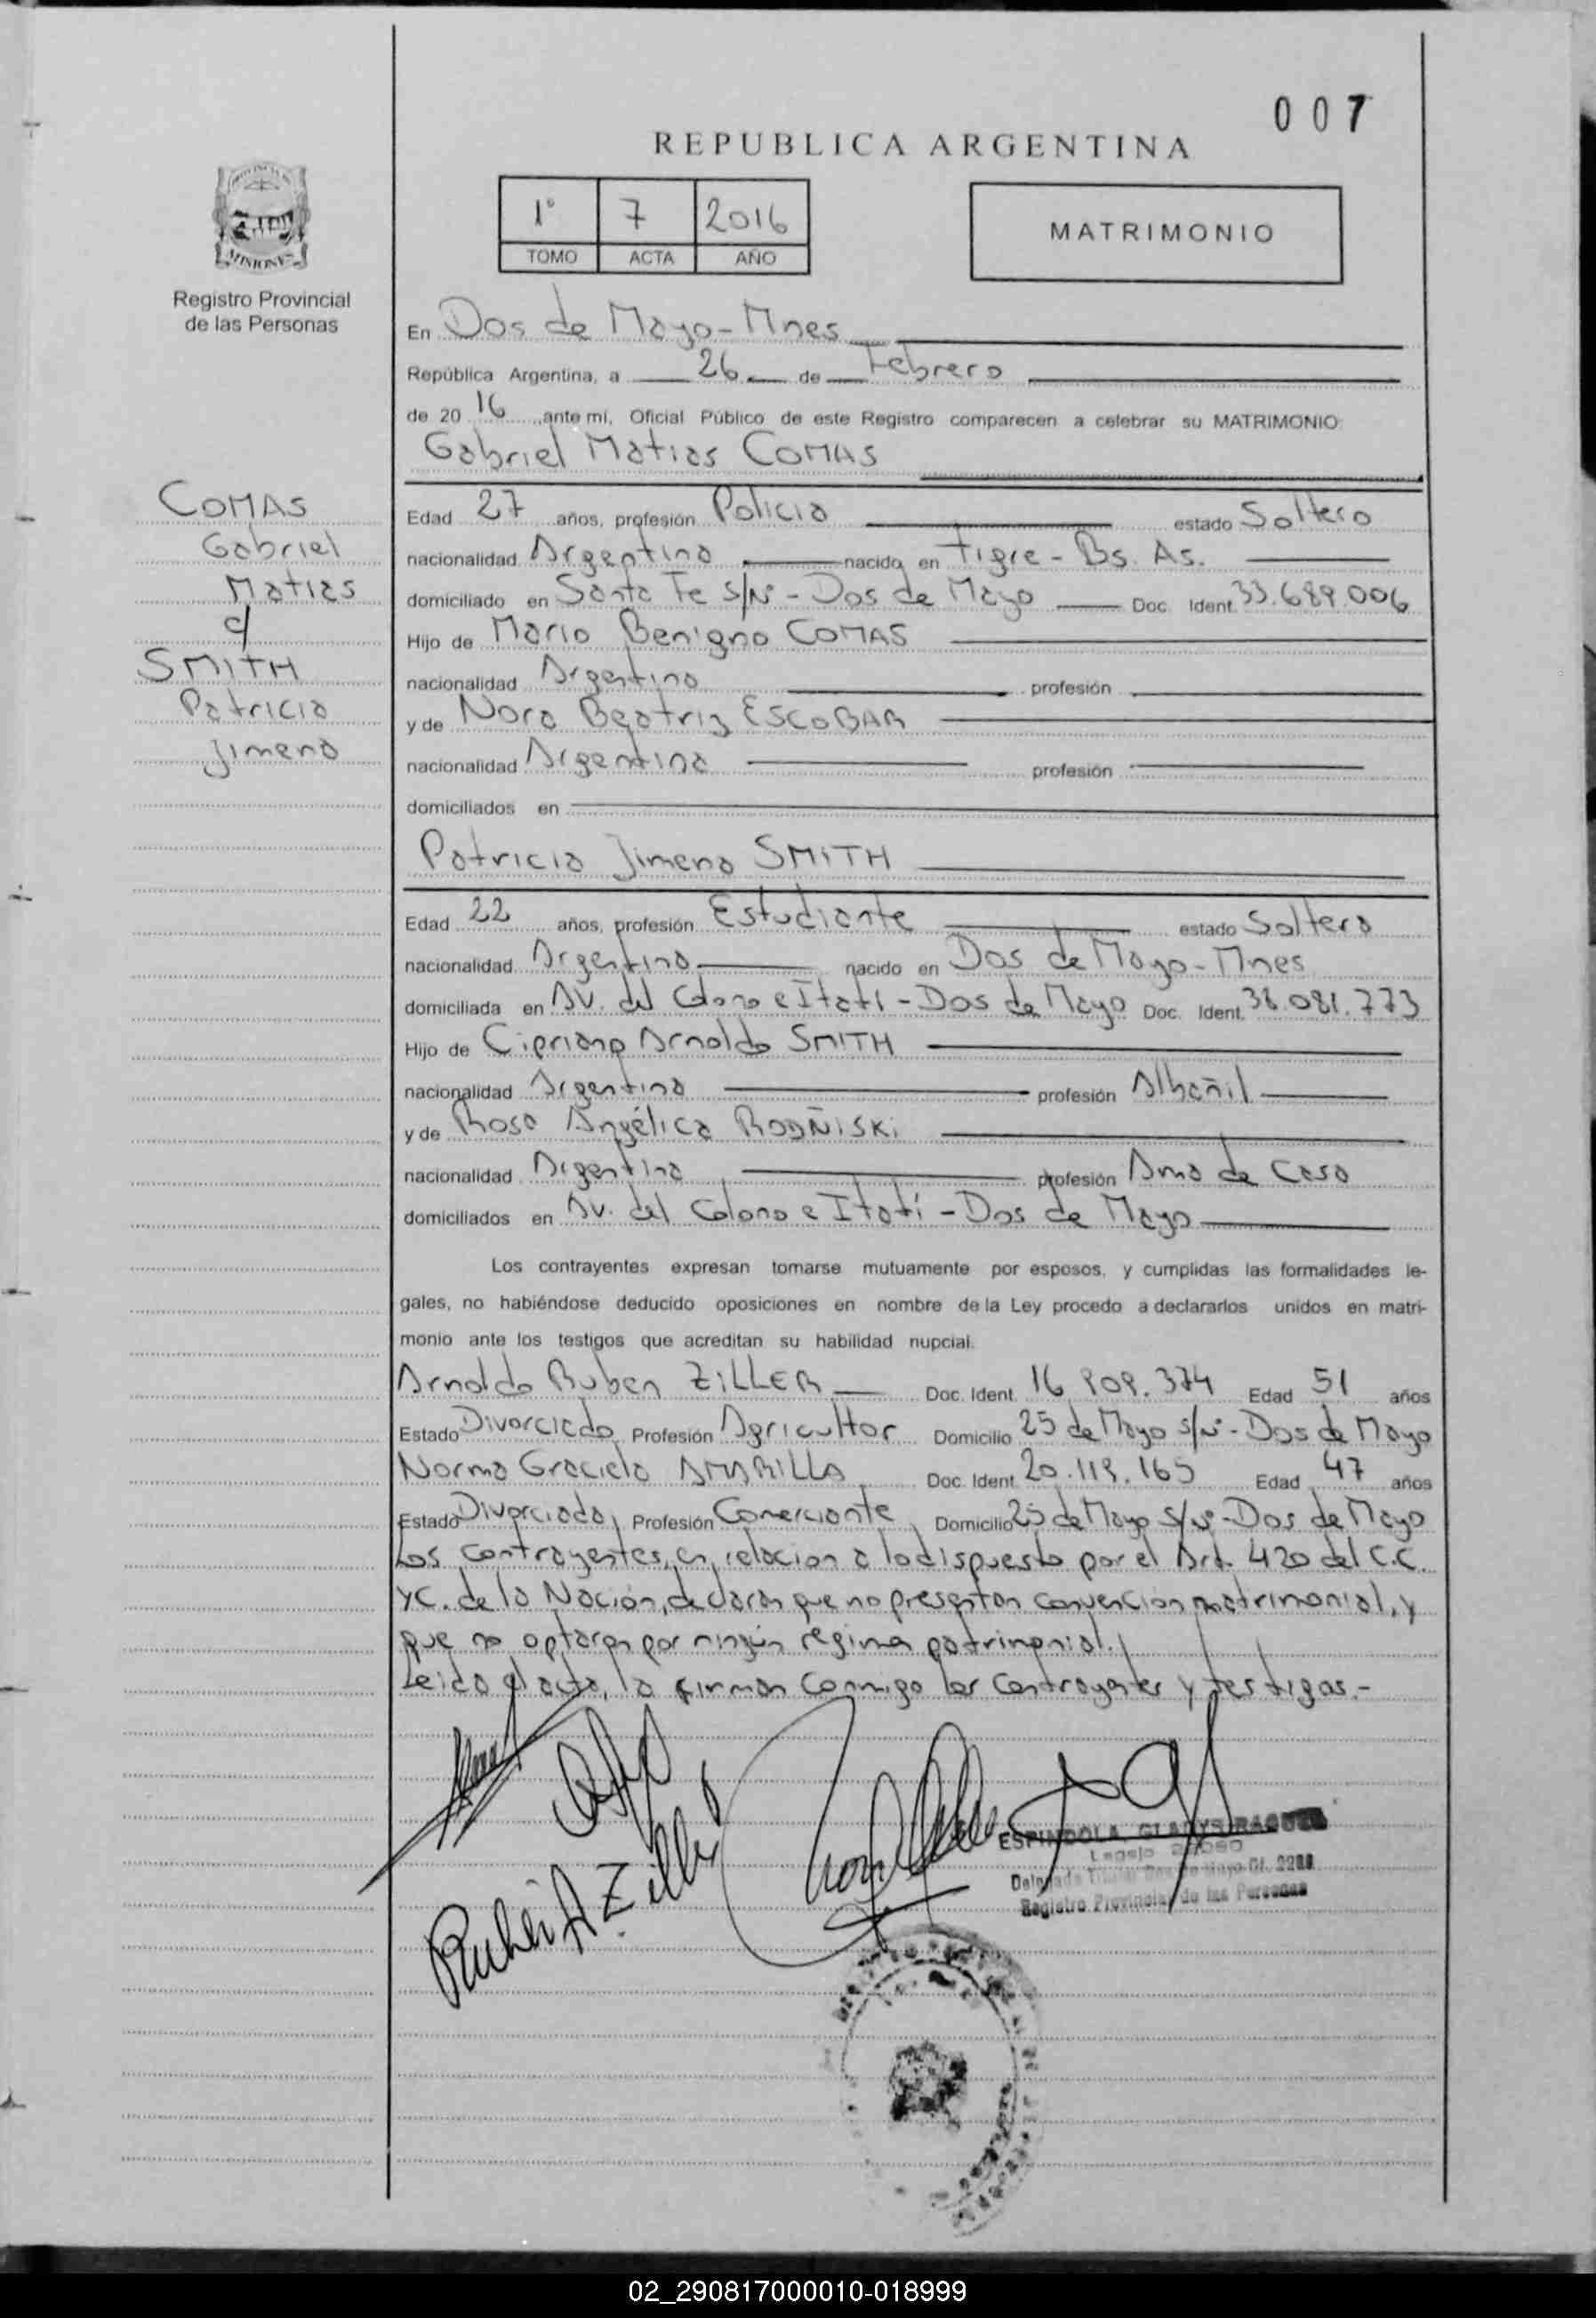 007
REPUBLICA ARGENTINA
1° 7 2016
TOMO ACTA AÑO
MATRIMONIO
MISIONES
Registro Provincial
de las Personas
En Dos de Mayo-Mnes
República Argentina, a 26 de Febrero
de 20 16 ante mi, Oficial Público de este Registro comparecen a celebrar su MATRIMONIO:
Gabriel Matias COMAS
COMAS
Gabriel
Matias
c/
SMITH
Patricia
Jimena
Edad 27 años, profesión Policia estado Soltero
nacionalidad Argentina nacido en Tigre - Bs. As.
domiciliado en Santa Fe S/N° - Dos de Mayo Doc. Ident. 33.689.006
Hijo de Mario Benigno COMAS
nacionalidad Argentina profesión
y de Nora Beatriz ESCOBAR
nacionalidad Argentina profesión
domiciliados en
Patricia Jimena SMITH
Edad 22 años, profesión Estudiante estado Soltera
nacionalidad Argentina nacido en Dos de Mayo-Mnes
domiciliada en Av. del Colono e Itatí - Dos de Mayo Doc. Ident. 38.081.773
Hijo de Cipriano Arnoldo SMITH
nacionalidad Argentina profesión Albañil
y de Rosa Angélica RODÑISKI
nacionalidad Argentina profesión Ama de Casa
domiciliados en Av. del Colono e Itatí - Dos de Mayo
Los contrayentes expresan tomarse mutuamente por esposos, y cumplidas las formalidades le-
gales, no habiéndose deducido oposiciones en nombre de la Ley procedo a declararlos unidos en matri-
monio ante los testigos que acreditan su habilidad nupcial.
Arnoldo Ruben ZILLER Doc. Ident. 16.909.374 Edad 51 años
Estado Divorciado Profesión Agricultor Domicilio 25 de Mayo s/N° - Dos de Mayo
Norma Graciela AMARILLA Doc. Ident. 20.119.165 Edad 47 años
Estado Divorciada, Profesión Comerciante, Domicilio 25 de Mayo S/N° - Dos de Mayo
Los contrayentes, en relacion a lo dispuesto por el Art. 420 del C.C.
YC. de la Nación, declaran que no presentan convencion matrimonial, y
que no optaron por ningún régimen patrimonial.
Leida el acta, la firman conmigo los contrayentes y testigos.-
Ruben A Ziller
ESPINDOLA GLADYS RAQUEL
Legajo
Delegada Titular Dos de Mayo
Registro Provincial de las Personas
02_290817000010-018999